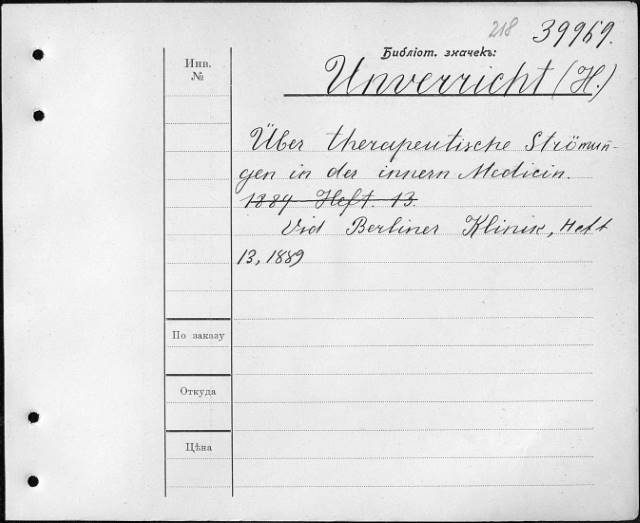 218 39969.
Библіот. значекъ:
Инв.
№
Unverricht (H.)
Über therapeutische Strömun-
gen in der innern Medicin.
1884 Heft. 13.
Vid Berliner Klinik, Heft
13, 1889
По заказу
Откуда
Цѣна